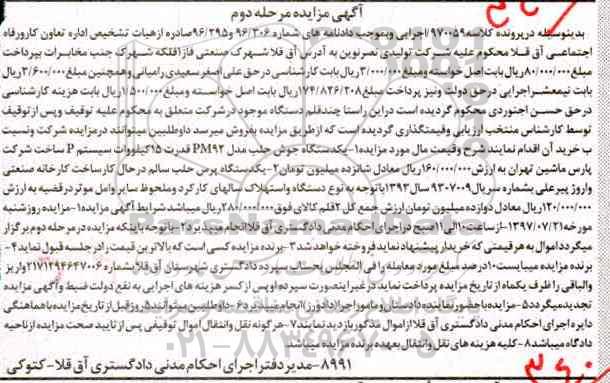 آگهی مزایده مرحله دوم
بدینوسیله در پرونده کلاسه ۹۷۰۰۵۹ اجرایی و بموجب دادنامه های شماره ۹۶/۳۰۶ و ۹۶/۲۹۵ صادره از هیات تشخیص اداره تعاون کار و رفاه
اجتماعی آق قلا محکوم علیه شرکت تولیدی نصر نوین به آدرس آق قلا شهرک صنعتی فاز آقلکه شهرک جنب مخابرات بپرداخت
مبلغ ۸۰/۰۰۰/۰۰۰ ریال بابت اصل خواسته و مبلغ ۳/۰۰۰/۰۰۰ ریال بابت کارشناسی در حق علی اصغر سعیدی رامیانی و همچنین مبلغ ۳/۶۰۰/۰۰۰ ریال
بابت نیمعشر اجرایی در حق دولت و نیز پرداخت مبلغ ۱۷۴/۸۲۶/۲۰۸ ریال بابت اصل خواسته و مبلغ ۱/۵۰۰/۰۰۰ ریال بابت هزینه کارشناسی
در حق حسن اجنوردی محکوم گردیده است در این راستا چند قلم دستگاه موجود در شرکت متعلق به محکوم علیه توقیف و پس از توقیف
توسط کارشناس منتخب ارزیابی و قیمتگذاری گردیده است که از طریق مزایده بفروش میرسد داوطلبین میتوانند در مزایده شرکت و نسبت
ب خرید آن اقدام نمایند شرح وقیمت مال مورد مزایده ۱- یکدستگاه جوش حلب مدل PM۹۲ قدرت ۱۵ کیلووات سیستم P ساخت شرکت
پارس ماشین تهران به ارزش ۱۶۰/۰۰۰/۰۰۰ ریال معادل شانزده میلیون تومان ۲- یکدستگاه پرس حلب سالم در حال کار ساخت کارخانه صنعتی
واروژ پیرعلی بشماره سریال ۹۳۰۷۰۰۹ سال ۱۳۹۳ با توجه به نوع دستگاه و استهلاک سالهای کارکرد و ملحوظ سایر عوامل موثر در قضیه به ارزش
۱۲۰/۰۰۰/۰۰۰ ریال معادل دوازده میلیون تومان ارزش جمع کل ۲ قلم کالای فوق ۲۸۰/۰۰۰/۰۰۰ ریال میباشد شرایط آگهی مزایده ۱- مزایده روز شنبه
مورخه ۱۳۹۷/۰۷/۲۱- از ساعت ۱۰ الی ۱۱ صبح در اجرای احکام مدنی دادگستری آق قلا انجام میپذیرد ۲- باتوجه باینکه مزایده در مرحله دوم برگزار
میگردد اموال به هر قیمتی که خریدار پیشنهاد نماید فروخته خواهد شد ۳- برنده مزایده کسی است که بالاترین قیمت را در جلسه قبول نماید ۴-
برنده مزایده میبایست ۱۰ درصد مبلغ مورد معامله را فی المجلس بحساب سپرده دادگستری شهرستان آق قلا بشماره ۲۱۷۱۲۹۴۶۴۷۰۰۶ واریز
والباقی را ظرف یکماه از تاریخ مزایده پرداخت نماید در غیر اینصورت سپرده او پس از کسر هزینه های اجرایی به نفع دولت ضبط و آگهی مزایده
تجدید میگردد ۵- مزایده با حضور نماینده دادستان و مامور اجرا (دادورز) انجام میپذیرد ۶- داوطلبین میتوانند ۵ روز قبل از تاریخ مزایده با هماهنگی
دایره اجرای احکام مدنی دادگستری آق قلا از اموال مذکور بازدید نمایند ۷- هرگونه نقل وانتقال اموال توقیفی پس از تایید صحت مزایده از ناحیه
دادگاه میباشد ۸- کلیه هزینه های نقل وانتقال بعهده برنده مزایده میباشد.
۸۹۹۱- مدیر دفتر اجرای احکام مدنی دادگستری آق قلا- کتوکی